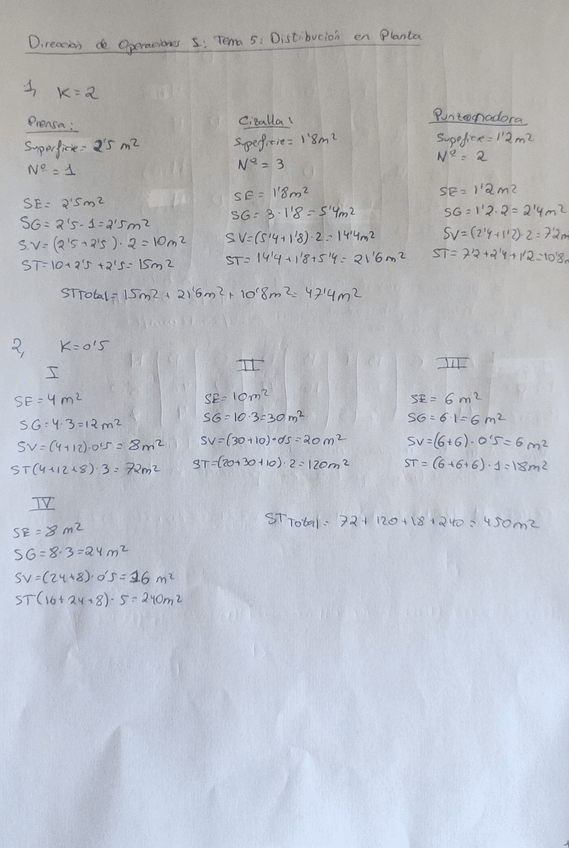 Dirección de Operaciones I: Tema 5: Distribución en Planta
1, K=2
Prensa:
Superficie= 2'5 m²
Nº = 1
SE= 2'5m²
SG= 2'5·1=2'5m²
SV= (2'5+2'5)·2=10m²
ST=10+2'5+2'5=15m²
Cizalla:
Superficie= 1'8m²
Nº = 3
SE= 1'8m²
SG= 3·1'8=5'4m²
SV=(5'4+1'8)·2=14'4m²
ST= 14'4+1'8+5'4=21'6m²
Superficie=1'2m²
Nº = 2
SE= 1'2m²
SG=1'2·2=2'4m²
SV=(2'4+1'2)·2=7'2m
ST=7'2+2'4+1'2=10'8m
STTotal= 15m²+21'6m²+10'8m²=47'4m²
2, K=0'5
I
SE=4m²
SG=4·3=12m²
SV=(4+12)·0'5=8m²
ST(4+12+8)·3=72m²
II
SE=10m²
SG=10·3=30m²
SV=(30+10)·05=20m²
ST=(20+30+10)·2=120m²
III
SE= 6m²
SG=6·1=6m²
SV=(6+6)·0'5=6m²
ST=(6+6+6)·1=18m²
IV
SE=8m²
SG=8·3=24m²
SV=(24+8)·0'5=16m²
ST(16+24+8)·5=240m²
STTotal= 72+120+18+240=450m²